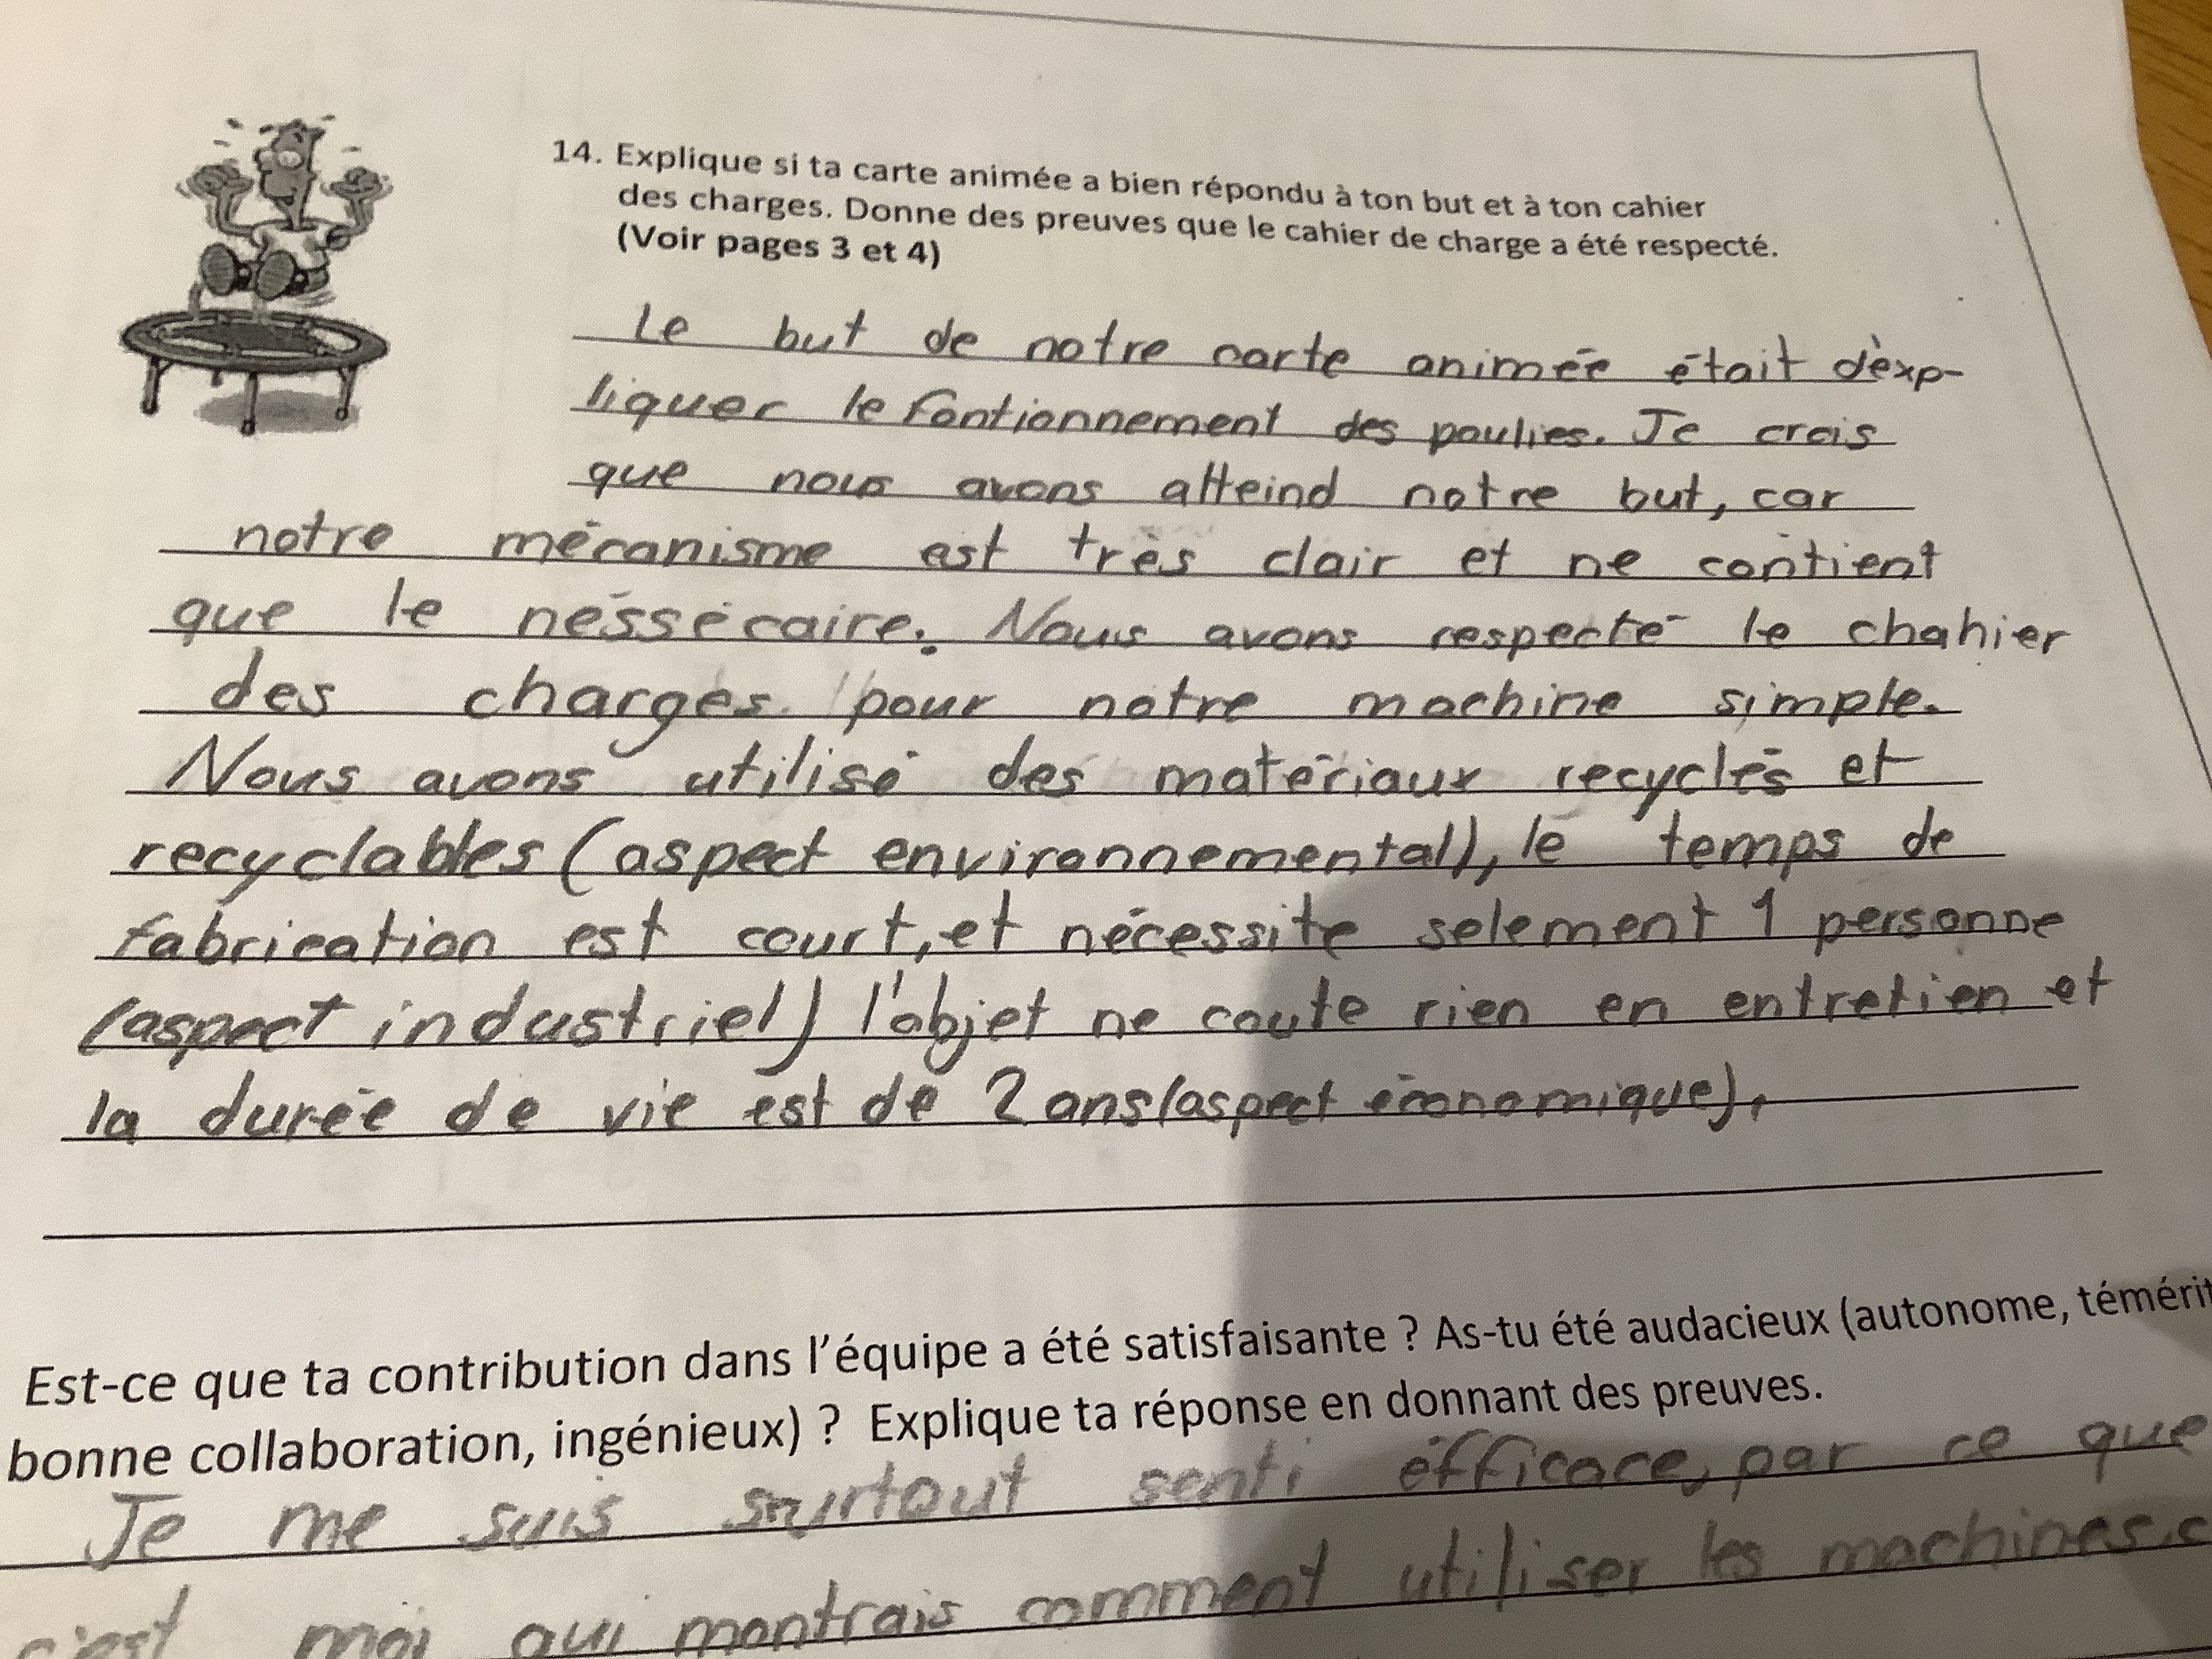 14. Explique si ta carte animée a bien répondu à ton but et à ton cahier
des charges. Donne des preuves que le cahier de charge a été respecté.
(Voir pages 3 et 4)
Le but de notre carte animée était d'exp-
liquer le fontionnement des poulies. Je crois
que nous avons atteind notre but, car
notre mécanisme est très clair et ne contient
que le néssécaire. Nous avons respecté le chahier
des charges pour notre machine simple.
Nous avons utilisé des matériaux recyclés et
recyclables (aspect environnemental), le temps de
fabrication est court, et nécessite selement 1 personne
(aspect industriel) l'objet ne coute rien en entretien et
la durée de vie est de 2 ans (aspect économique).
Est-ce que ta contribution dans l'équipe a été satisfaisante ? As-tu été audacieux (autonome, témérit
bonne collaboration, ingénieux) ? Explique ta réponse en donnant des preuves.
Je me suis surtout senti éfficace, par ce que
c'est moi qui montrais comment utiliser les machines.